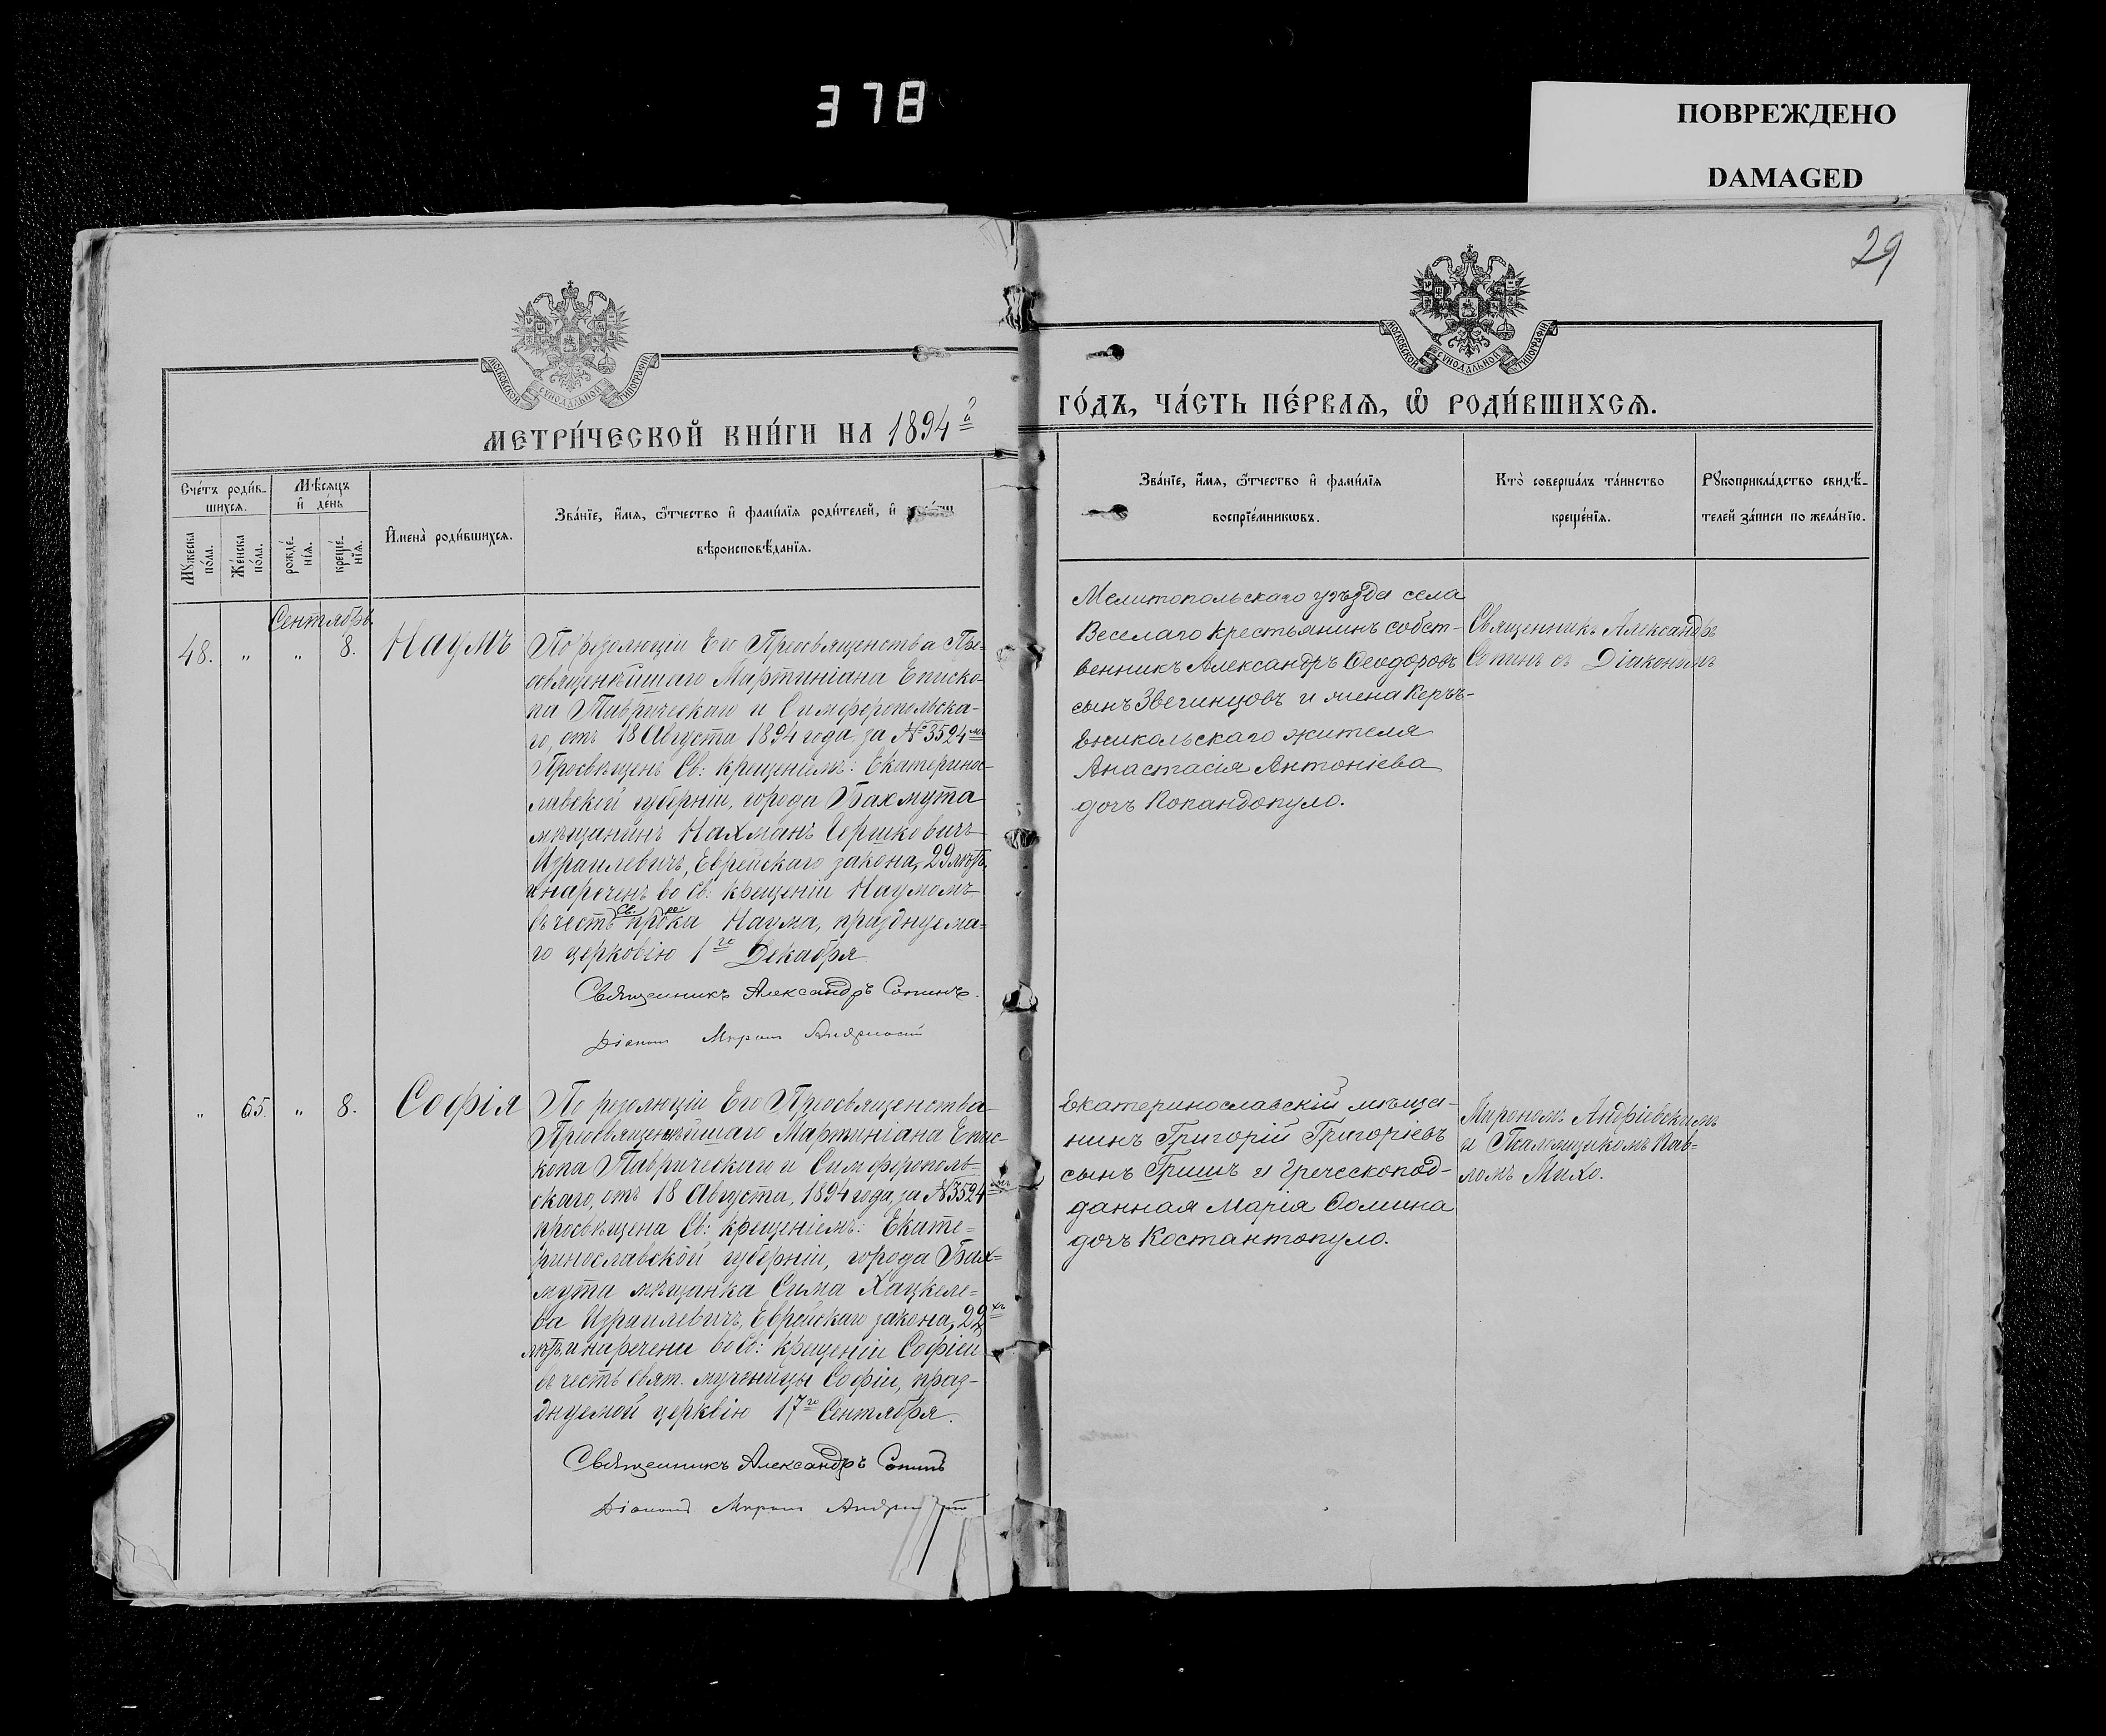 378
ПОВРЕЖДЕНО
DAMAGED
29
МОСКОВСКОЙ СУНОДАЛЬНОЙ ТИПОГРАФІИ
МОСКОВСКОЙ СУНОДАЛЬНОЙ ТИПОГРАФІИ
МЕТРИ́ЧЕСКОЙ КНИ́ГИ НА 1894й
ГО́ДЪ, ЧА́СТЬ ПЕ́РВАѦ, Ѡ РОДИ́ВШИХСѦ.
Сче́тъ роди́в-
шихсѧ.
Мꙋжеска по́ла.
Же́нска по́ла.
Мѣ́сѧцъ
и҆ де́нь
рожде́-
нїѧ.
креще́-
нїѧ.
И҆мена̀ роди́вшихсѧ.
Зва́нїе, и҆́мѧ, ѻ҆́тчество и҆ фами́лїѧ роди́телей, и҆
вѣроисповѣ́данїѧ.
Зва́нїе, и҆́мѧ, ѻ҆́тчество и҆ фами́лїѧ
воспрїе́мникѡвъ.
Кто̀ соверша́лъ та́инство
креще́нїѧ.
Рꙋкоприкла́дство свидѣ́-
телей за́писи по жела́нїю.
Сентябрь
48. „ „ 8. Наумъ
По резолюціи Его Преосвященства Пре-
освященнѣйшаго Мартиніана Еписко-
па Таврическаго и Симферопольска-
го, отъ 18 Августа 1894 года за №3524мъ
Просвѣщенъ Св: крещеніемъ: Екатерино-
славской губерніи, города Бахмута
мѣщанинъ Нахманъ Гершковичъ
Израилевичъ, Еврейскаго закона, 29 лѣтъ,
и нареченъ во св: крещеніи Наумомъ
въ честь св. прока Наума, празднуема-
го церковію 1го Декабря
Священникъ Александръ Сопинъ.
Діаконъ Миронъ
Мелитопольскаго уѣзда села
Веселаго крестьянинъ собст-
венникъ Александръ Ѳеодоровъ
сынъ Звегинцовъ и жена Керчъ-
Еникольскаго жителя
Анастасія Антоніева
дочъ Попандопуло.
Священникъ Александръ
Сопинъ съ Діакономъ
„ 65. „ 8. Софія
По резолюціи Его Преосвященства
Преосвященнѣйшаго Мартиніана Епис-
копа Таврическаго и Симферополь-
скаго, отъ 18 Августа, 1894 года, за №3524мъ
просвѣщена Св: крещеніемъ: Екате-
ринославской губерніи, города Бах-
мута мѣщанка Сима Хацкеле-
ва Израилевичъ, Еврейскаго закона, 22хъ
лѣтъ, и наречена во Св: крещеніи Софіею
въ честь Свят. мученицы Софіи, праз-
днуемой церквію 17го Сентября.
Священникъ Александръ Сопинъ
Діаконъ Миронъ
Екатеринославскій мѣща-
нинъ Григорій Григоріевъ
сынъ Гришъ и Греческопод-
данная Марія Ѳомина
дочъ Костантопуло.
Мирономъ Андріевскимъ
и Псаломщикомъ Пав-
ломъ Михо.